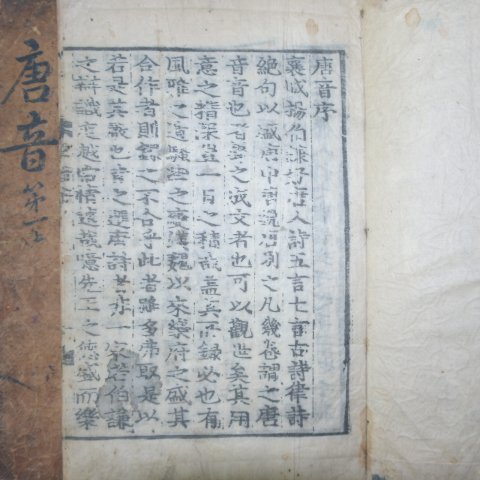 唐音序
襄城揚伯謙好唐人詩五言七言古詩律詩
絶句以盛唐中唐晚唐別之凡幾卷謂之唐
音音也者聲之成文者也可以觀世矣其用
意之精深豈一日之積哉盖其所録必也有
風雅之遺騷些之變漢魏以来樂府之盛其
合作者則録之不合乎此者雖多弗取是以
若是其嚴也昔之選唐詩者非一家若伯謙
之辯識度越常情遠哉噫先王之德盛而樂
唐音第一